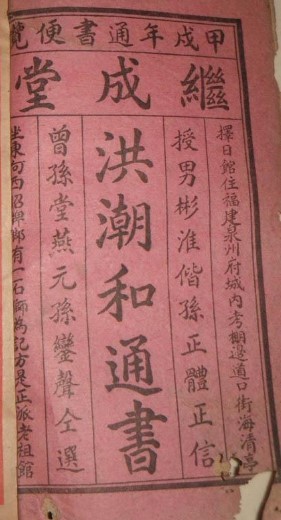 甲戌年通書便覽
繼成堂
擇日館住福建泉州府城內考棚邊道口街海清亭
授男彬淮偕孫正體正信
洪潮和通書
曾孫堂燕元孫鑾聲仝選
坐東向西招牌有一石獅為記方是正派老祖館